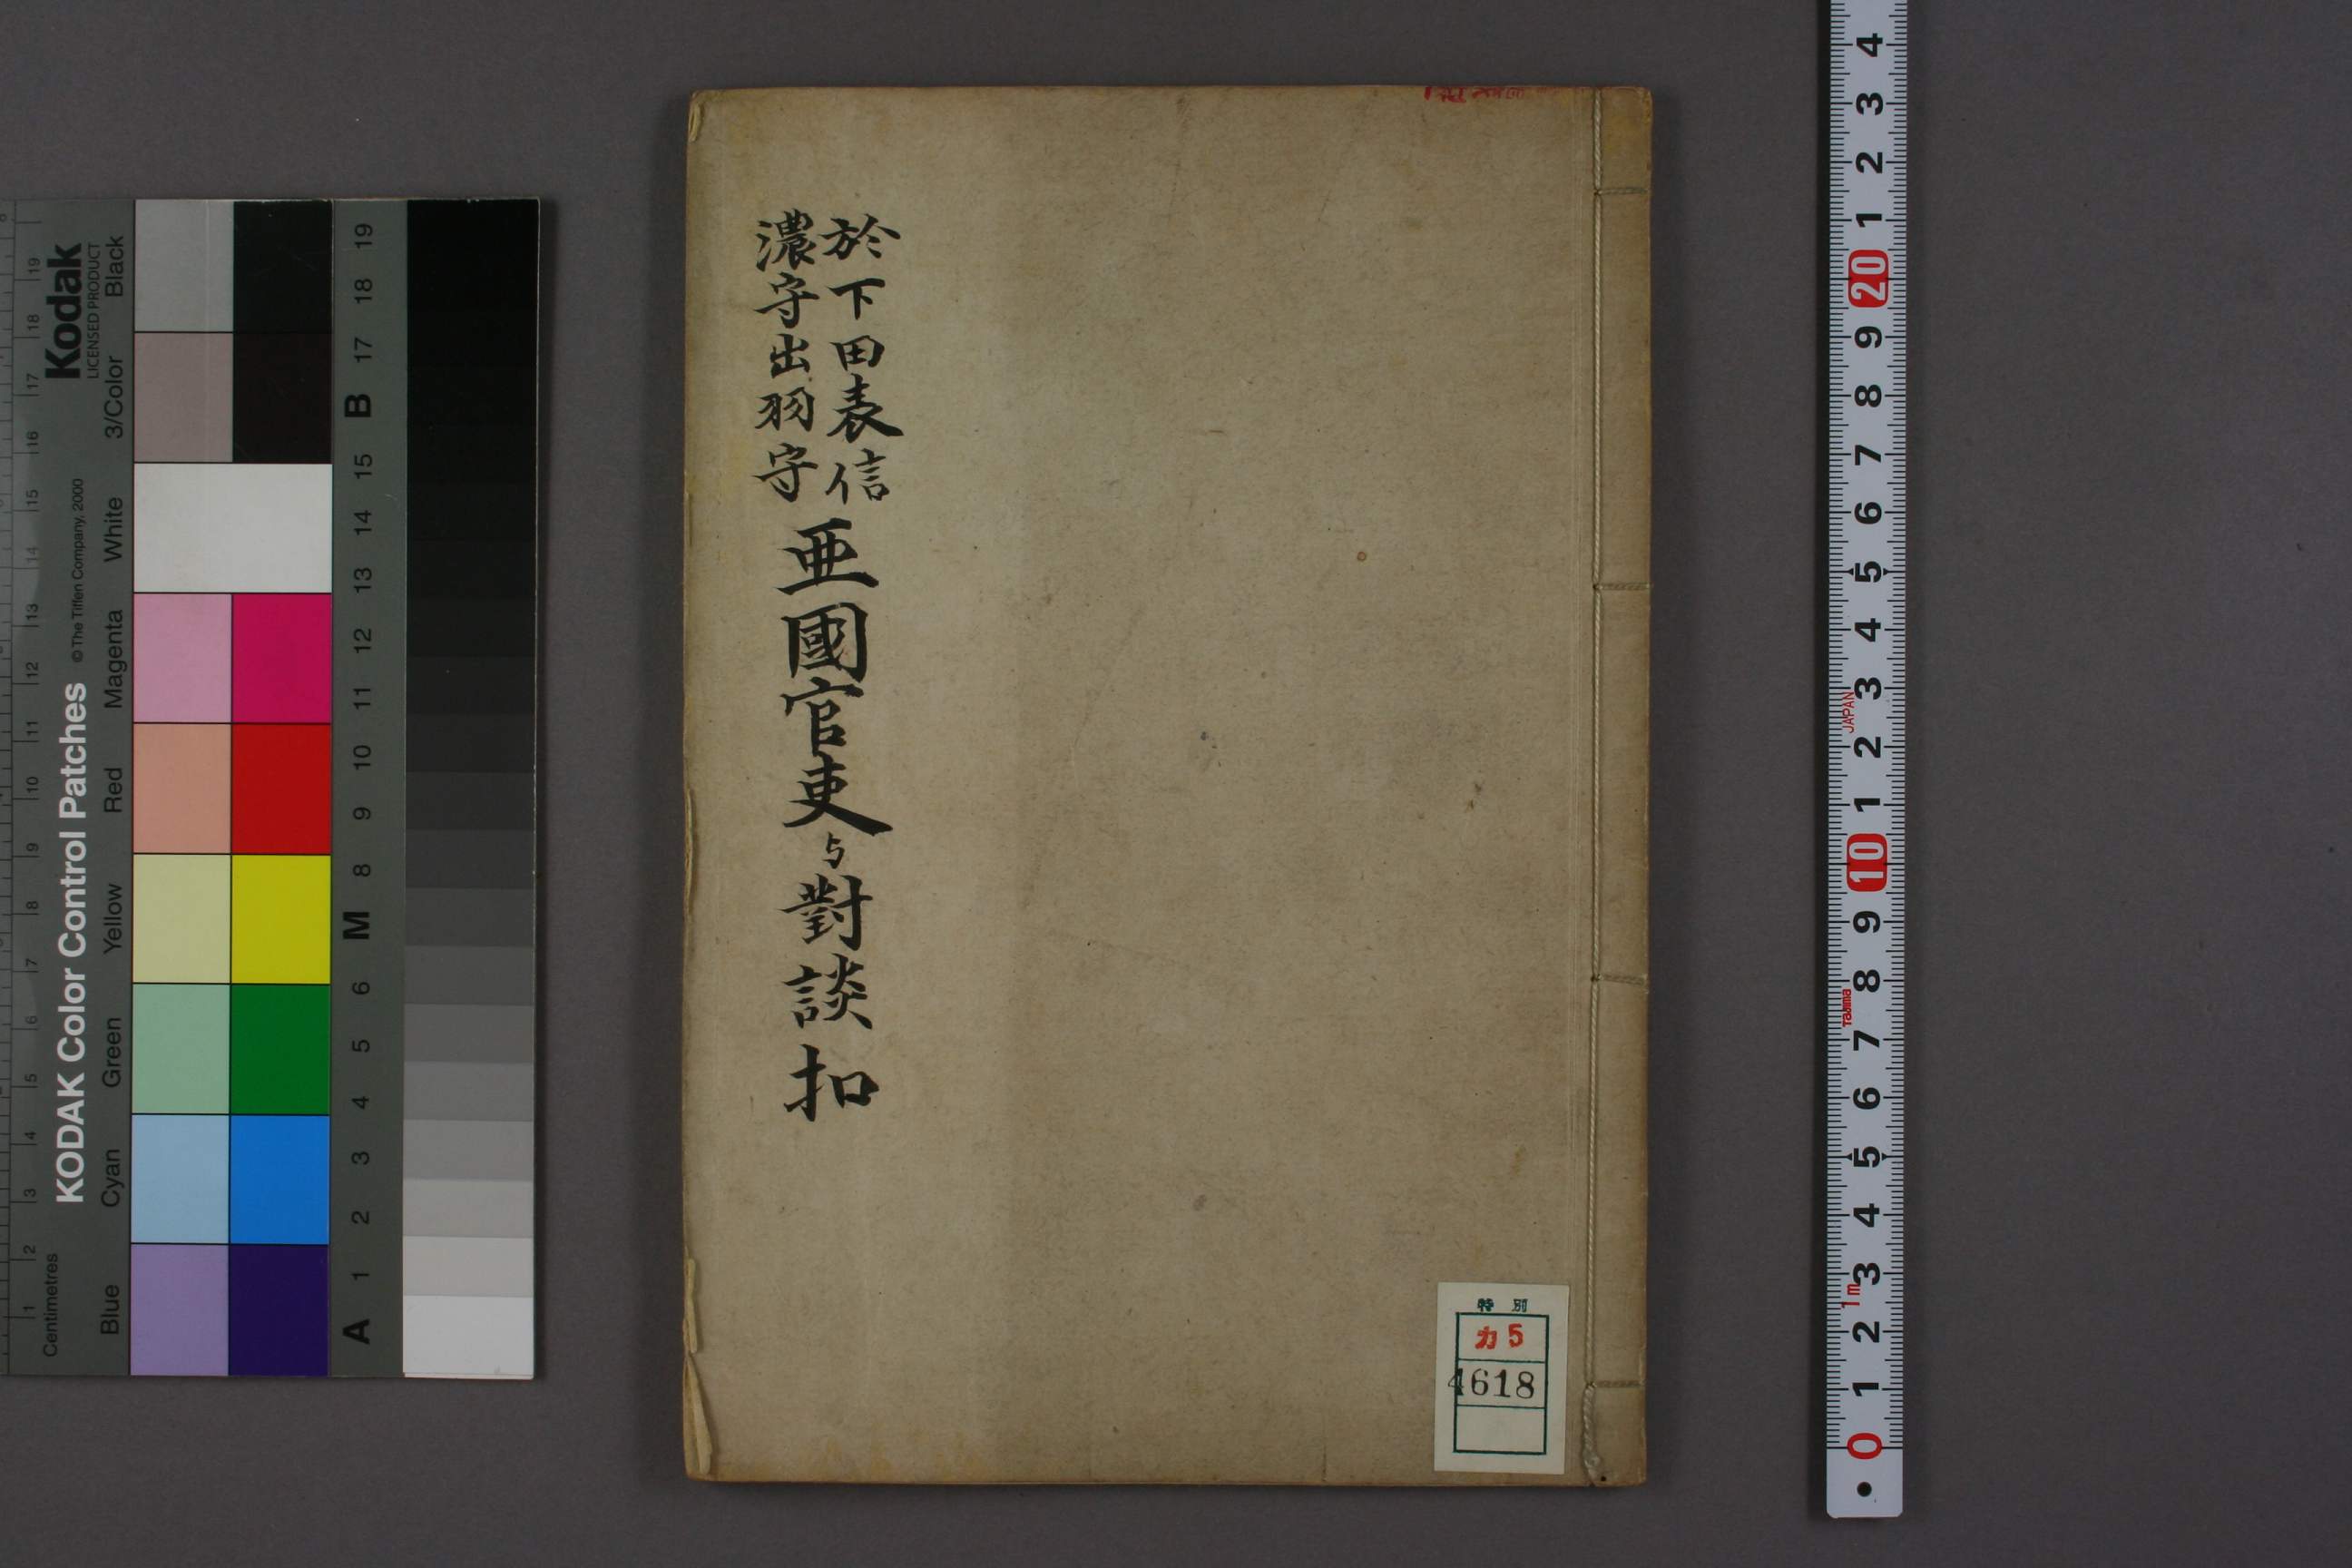 於下田表信
濃守出羽守
亜國官吏与對談扣
特別
カ5
4618
KODAK Color Control Patches
© The Tiffen Company, 2000
Kodak
LICENSED PRODUCT
Centimetres
Blue
Cyan
Green
Yellow
Red
Magenta
White
3/Color
Black
1 2 3 4 5 6 7 8 9 10 11 12 13 14 15 16 17 18 19
A 1 2 3 4 5 6 M 8 9 10 11 12 13 14 15 B 17 18 19
4
3
2
1
20
9
8
7
6
5
4
3
2
1
10
9
8
7
6
5
4
3
2
1
0
JAPAN
Tajima
1m